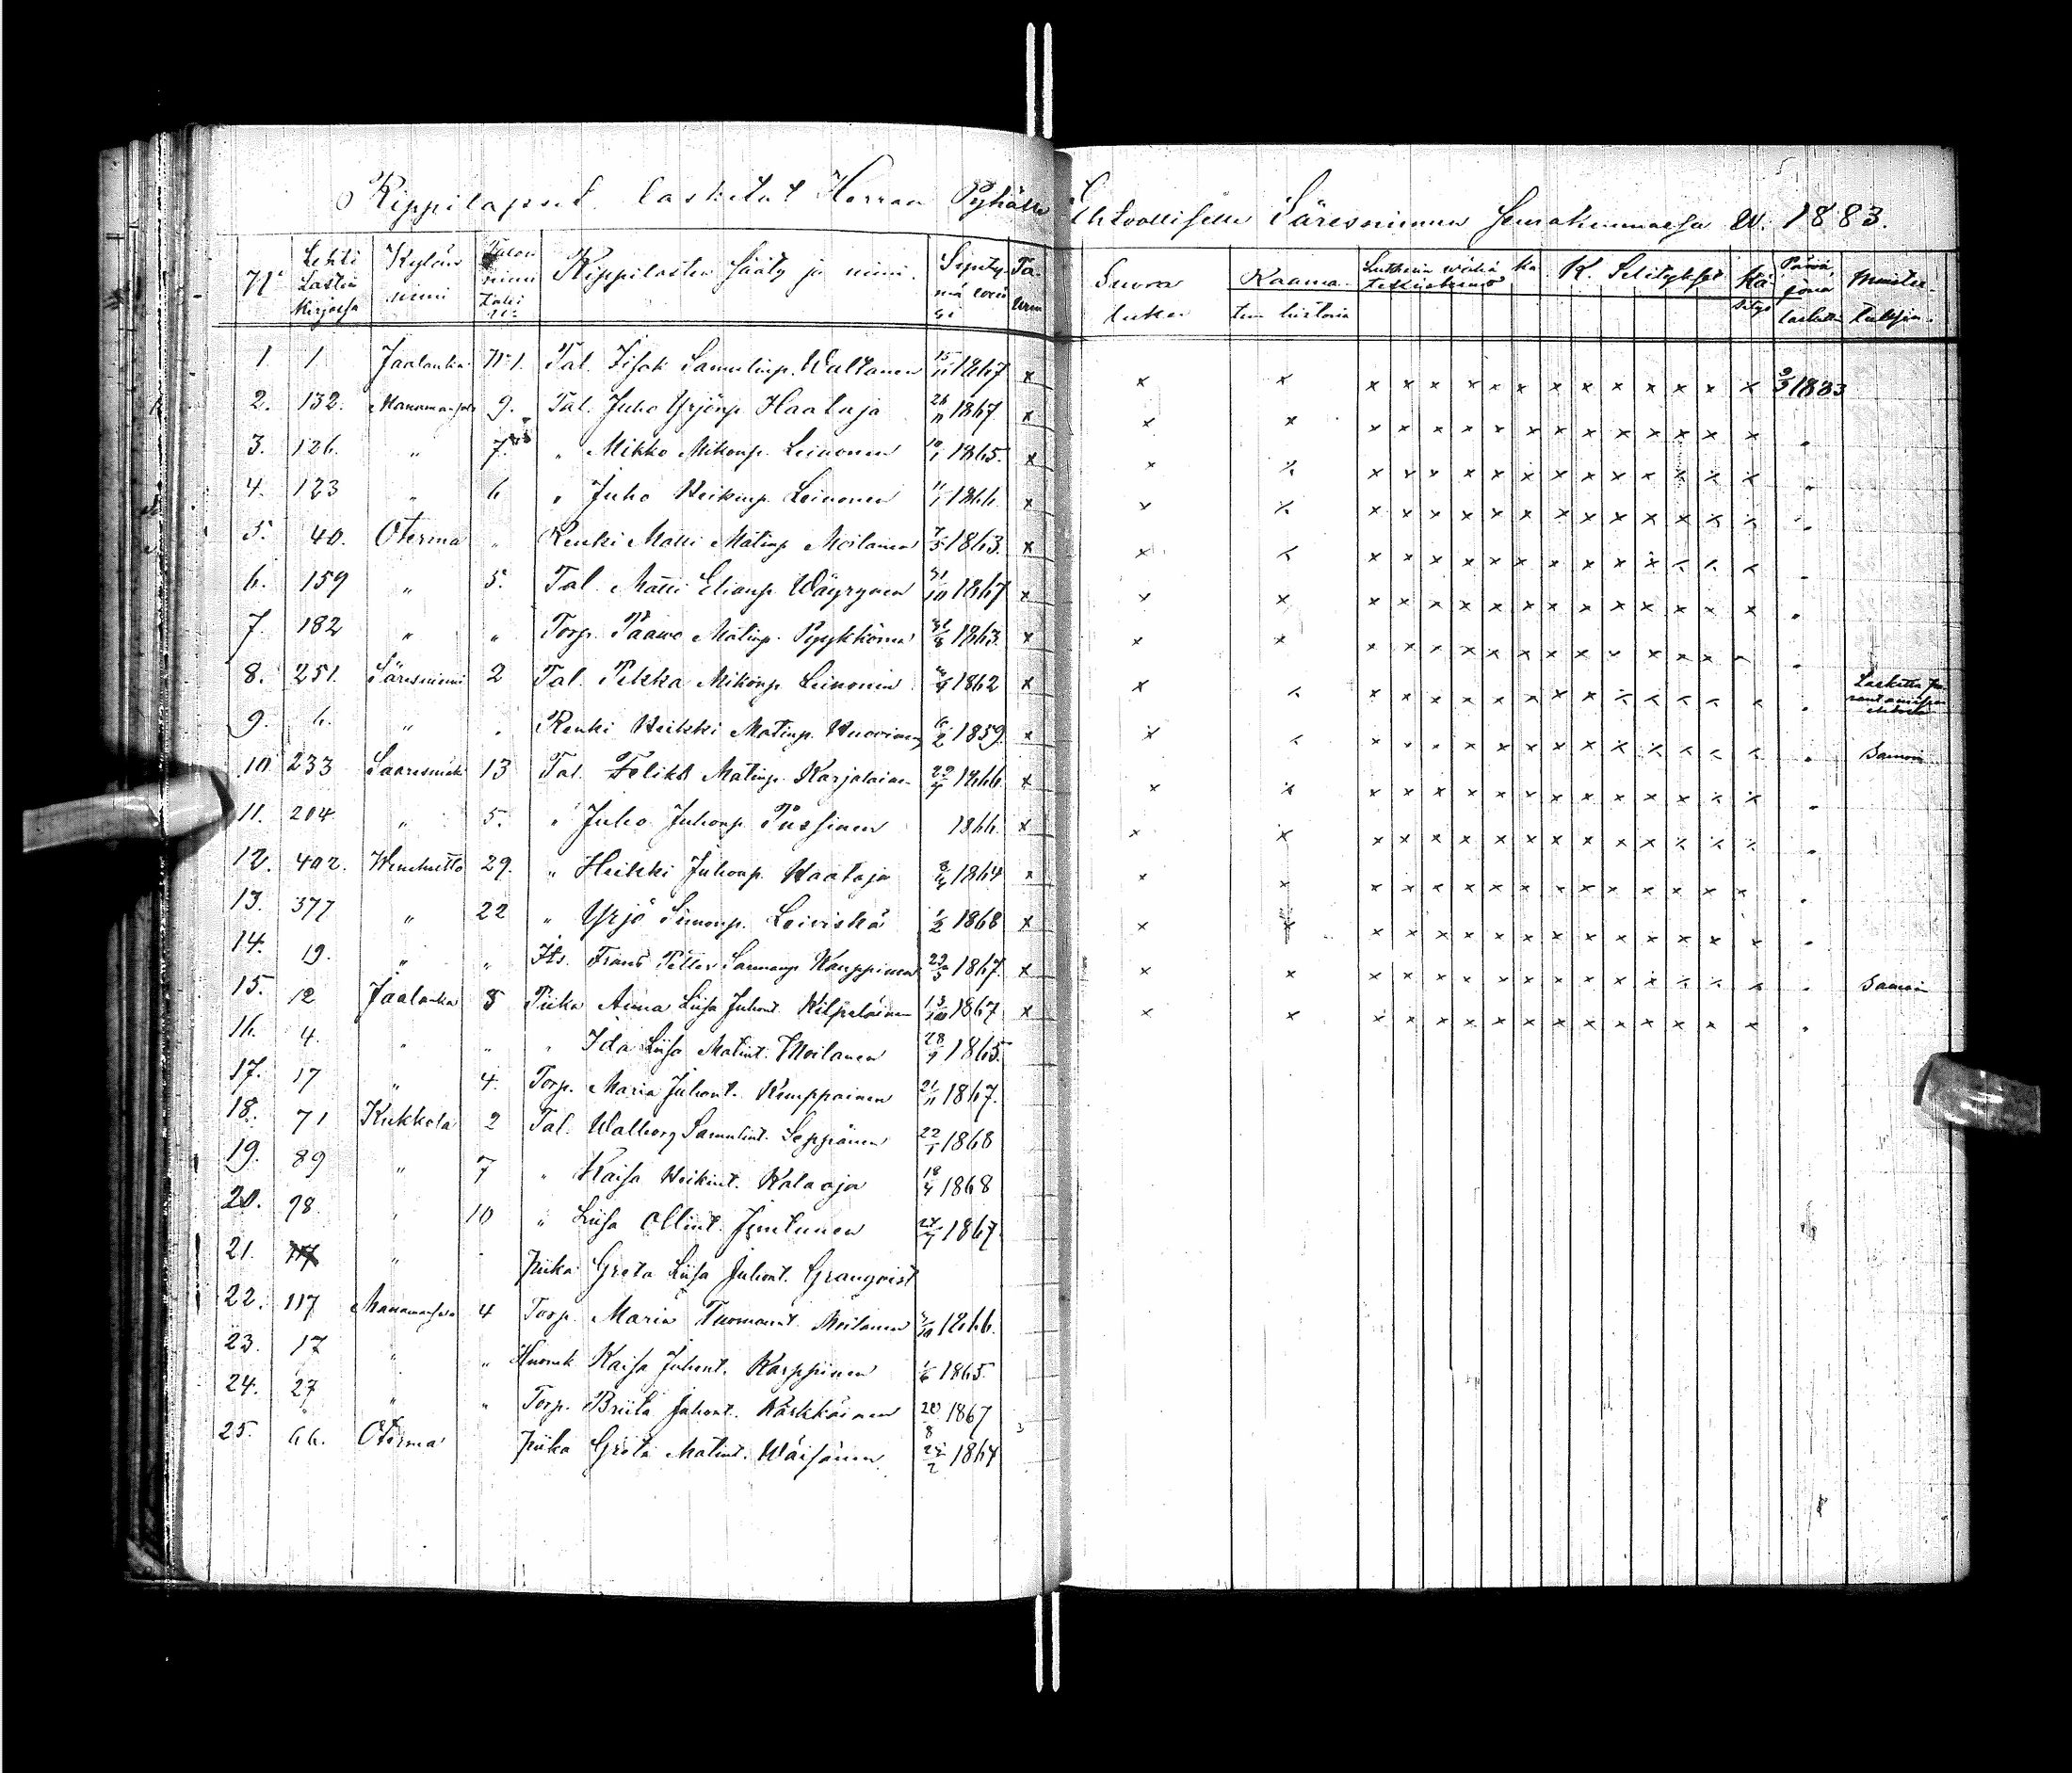 Rippilapset lasketut Herran Pyhälle Ehtoolliselle Säresniemen seurakunnassa W. 1883.
N° Lehti Lastin Kirjassa Kylän nimi Talon nimi Rippilasten sääty ja nimi. Synty- mä Suora luku Raama- tun historia K. Selitykset Kä- sitys Päivä, jona laskettu Muistu-
1. 1 Jaalanka N:1. Tal. Iisak Samulinp. Waltanen 15/11 1867 x x x x x x x x x x x x x x x x x 9/5 1883
2. 132. Manamansalo 9. Tal. Juho Yrjönp. Haataja 26/11 1867 x x x x x x x x x x x x x x x x x
3. 126. " 7. " Mikko Mikonp. Leinonen 10/1 1865. x x x x x x x x x x x x x x x x x
4. 123 " 6 " Juho Heikinp. Leinonen 11/1 1866. x x x x x x x x x x x x x x x x x
5. 40. Oterma " Renki Matti Matinp. Moilanen 7/5 1863. x x x x x x x x x x x x x x x x x
6. 159 " 5. Tal. Matti Elianp. Wäyrynen 31/10 1867 x x x x x x x x x x x x x x x x x
7. 182 " " Torp. Paawo Matinp. Pyykkönen 31/8 1863. x x x x x x x x x x x x x x x x x
8. 251. Säresniemi 2 Tal. Pekka Mikonp. Leinonen 1862 x x x x x x x x x x x x x x x x x Laskettu
9. 6. " " Renki Heikki Matinp. Huovinen 6/2 1859. x x x x x x x x x x x x x x x x x Samoin
10 233 Saaresmäki 13 Tal. Feliks Matinp. Karjalainen 1866. x x x x x x x x x x x x x x x x x
11. 204 " 5. " Juho Juhonp. Pussinen 1866. x x x x x x x x x x x x x x x x x
12. 402. Wenehetto 29. " Heikki Juhonp. Haataja 1864 x x x x x x x x x x x x x x x x x
13. 377 " 22 " Yrjö Simonp. Leiviskä 1/2 1868 x x x x x x x x x x x x x x x x x
14. 19. " " Its. Frans Petter Karppinen 23/5 1867. x x x x x x x x x x x x x x x x x Samoin
15. 12 Jaalanka 8 Piika Anna Liisa Juhont. Kilpeläinen 13/10 1867 x x x x x x x x x x x x x x x x x
16. 4. " " " Ida Liisa Matint. Moilanen 28/9 1865.
17. 17 " 4. Torp. Maria Juhont. Kemppainen 21/11 1867.
18. 71 Kukkola 2 Tal. Walborg Samulint. Seppänen 22/1 1868
19. 89 " 7 " Kaisa Heikint. Kalaoja 18/4 1868
20. 98 " 10 " Liisa Ollint. Juntunen 1867
21. 117 " Piika Greta Liisa Juhont. Granqvist
22. 117 Manamansalo 4 Torp. Maria Tuomant. Moilanen 1866.
23. 17 " " Huonek Kaisa Juhont. Karppinen 1/6 1865.
24. 27 " " Torp. Briita Juhont. Kärkkäinen 20/8 1867
25. 66. Oterma Piika Greta Matint. Wäisänen 1864